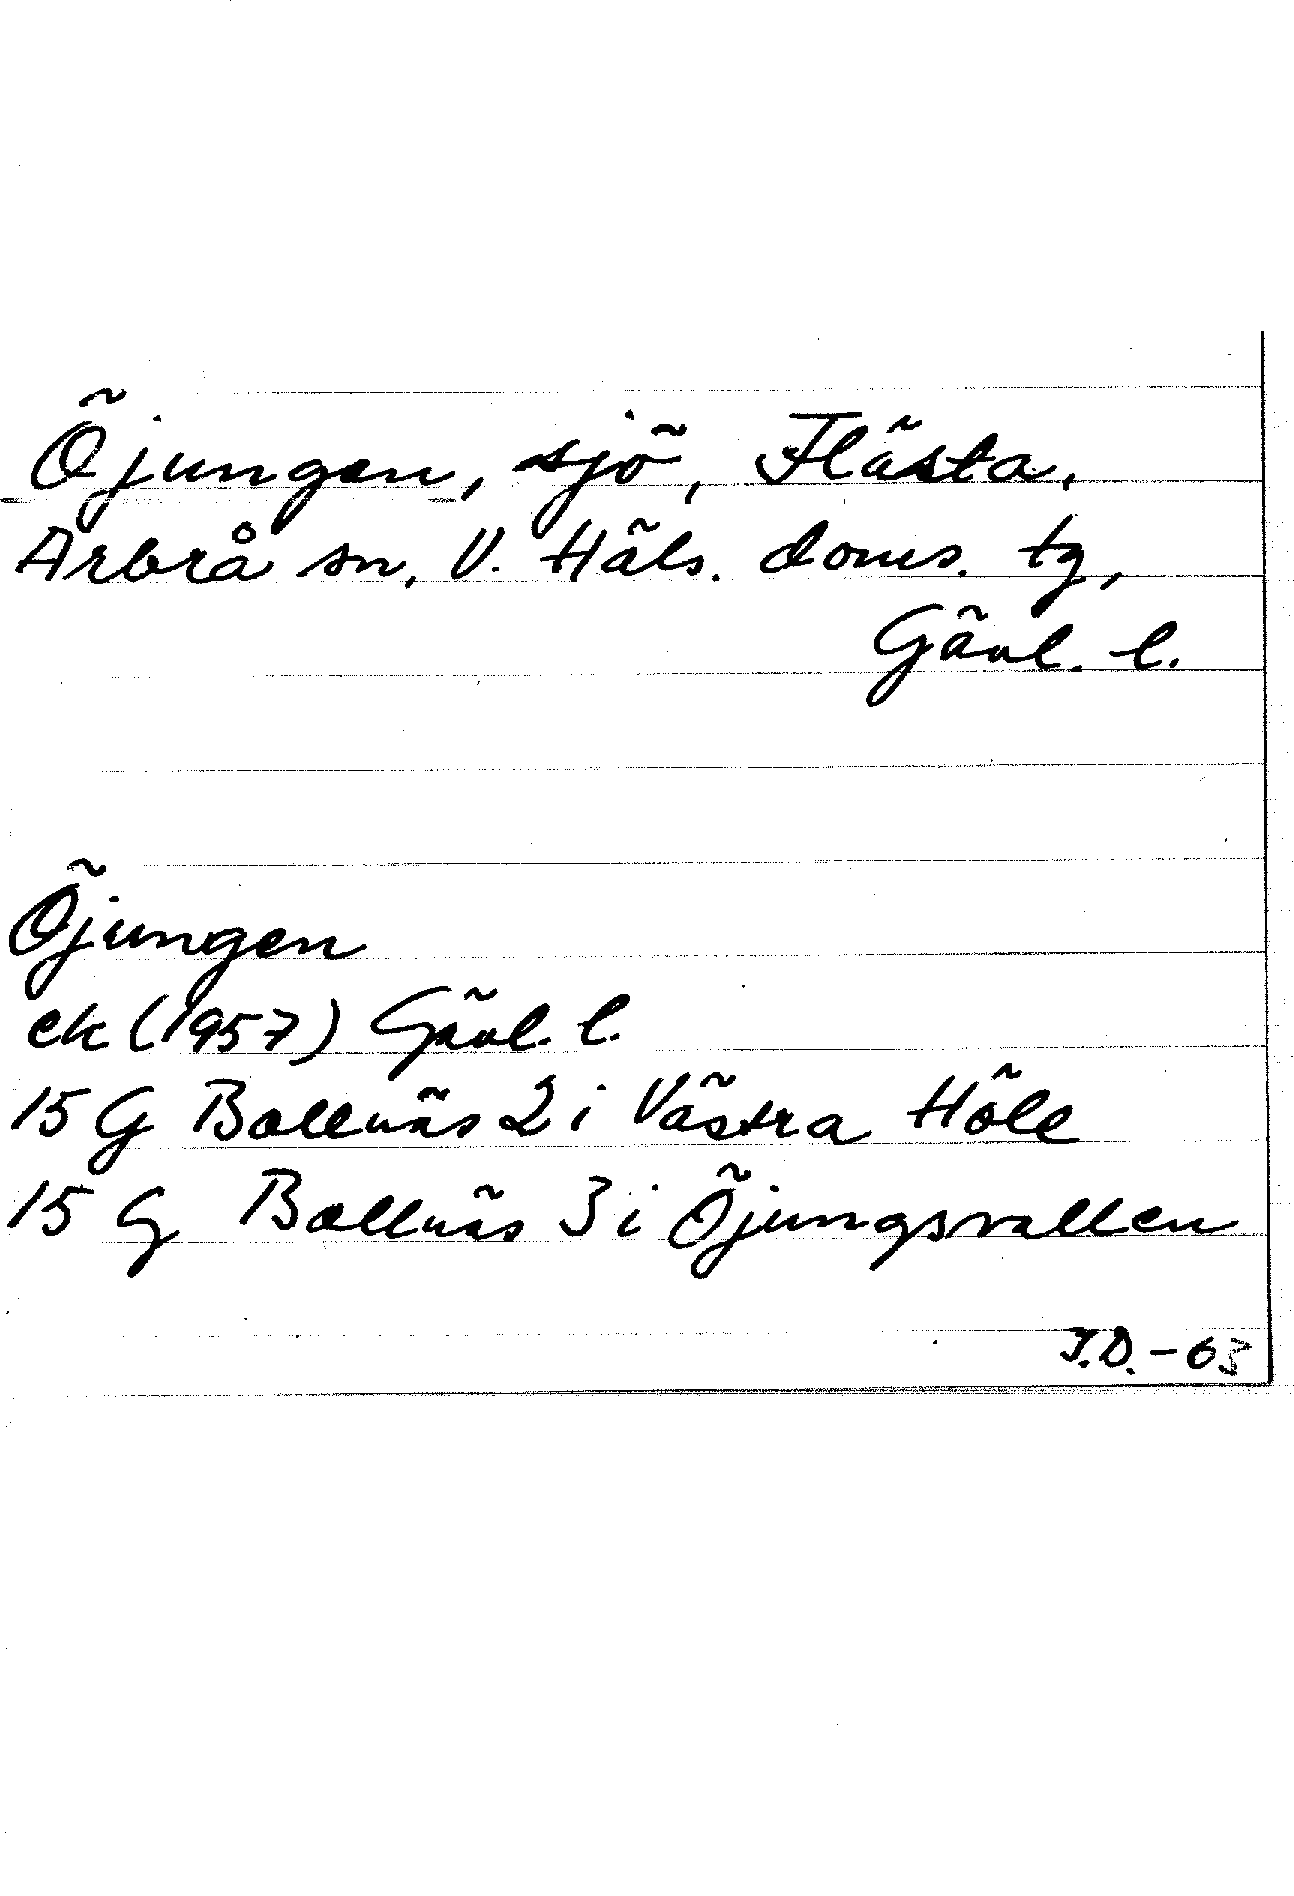 Öjungen, sjö, Flästa,
Arbrå sn, V. Häls. doms. tg,
Gävl. l.
Öjungen
ek (1957) Gävl. l.
15 G Bollnäs 2 i Västra Höle
15 G Bollnäs 3 i Öjungsvallen
I.D. - 63